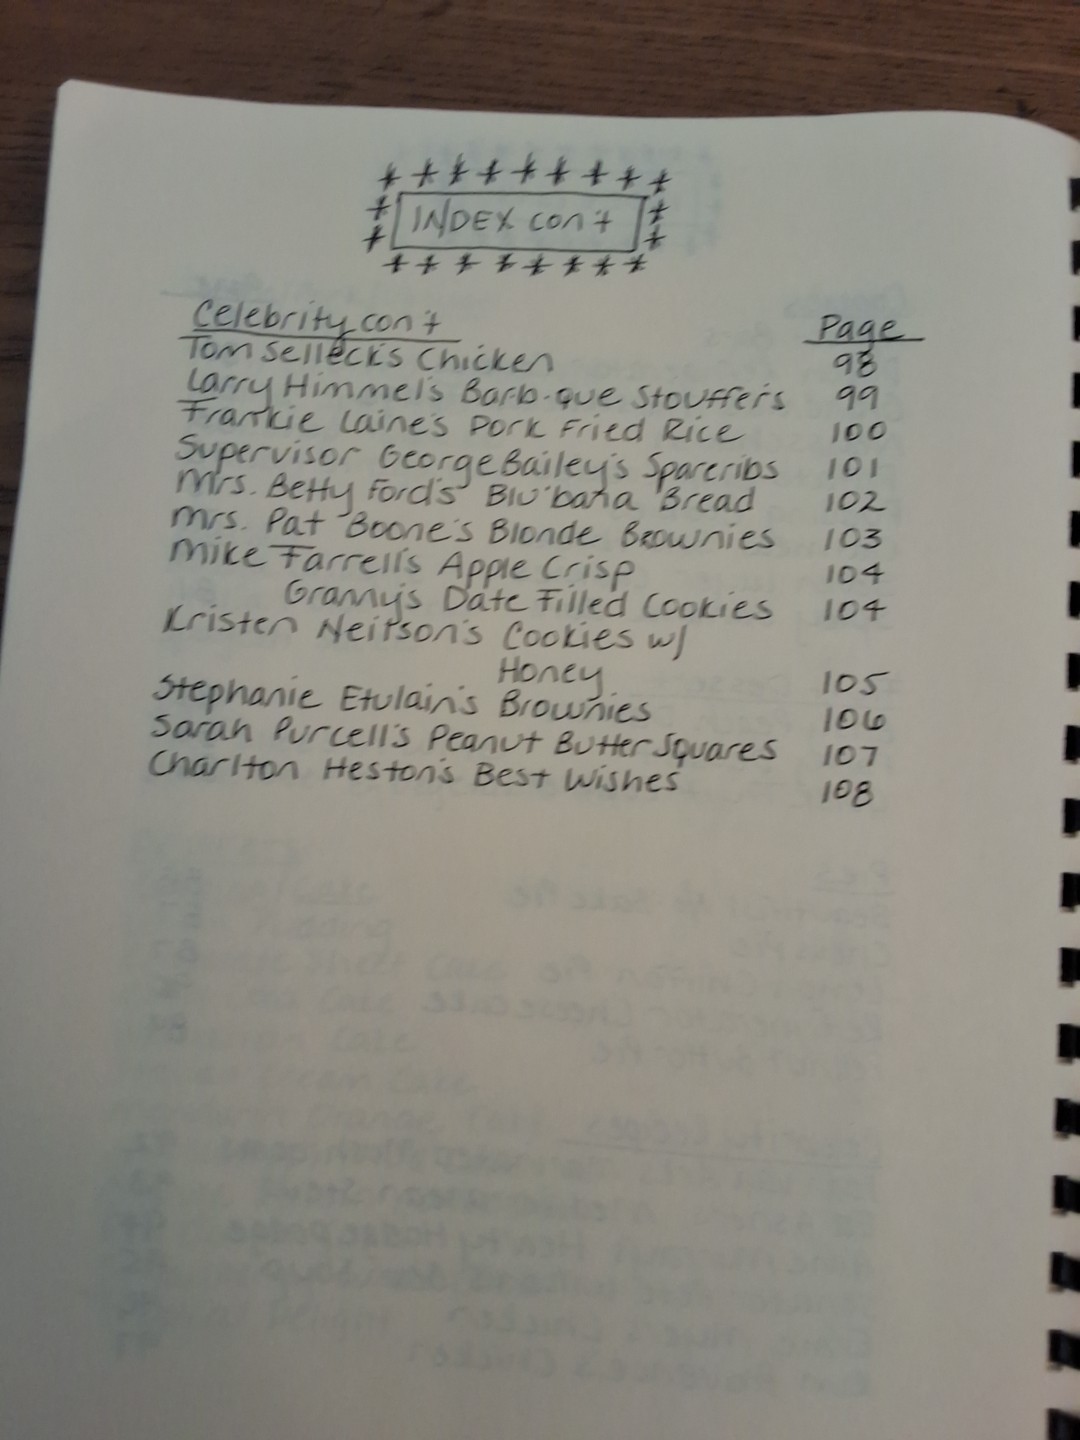 INDEX con't
Celebrity con't Page
Tom Selleck's Chicken 98
Larry Himmel's Barb-que Stouffer's 99
Frankie Laine's Pork Fried Rice 100
Supervisor George Bailey's Spareribs 101
Mrs. Betty Ford's Blu'bana Bread 102
Mrs. Pat Boone's Blonde Brownies 103
Mike Farrell's Apple Crisp 104
Granny's Date Filled Cookies 104
Kristen Neilson's Cookies w/
Honey 105
Stephanie Etulain's Brownies 106
Sarah Purcell's Peanut Butter Squares 107
Charlton Heston's Best Wishes 108